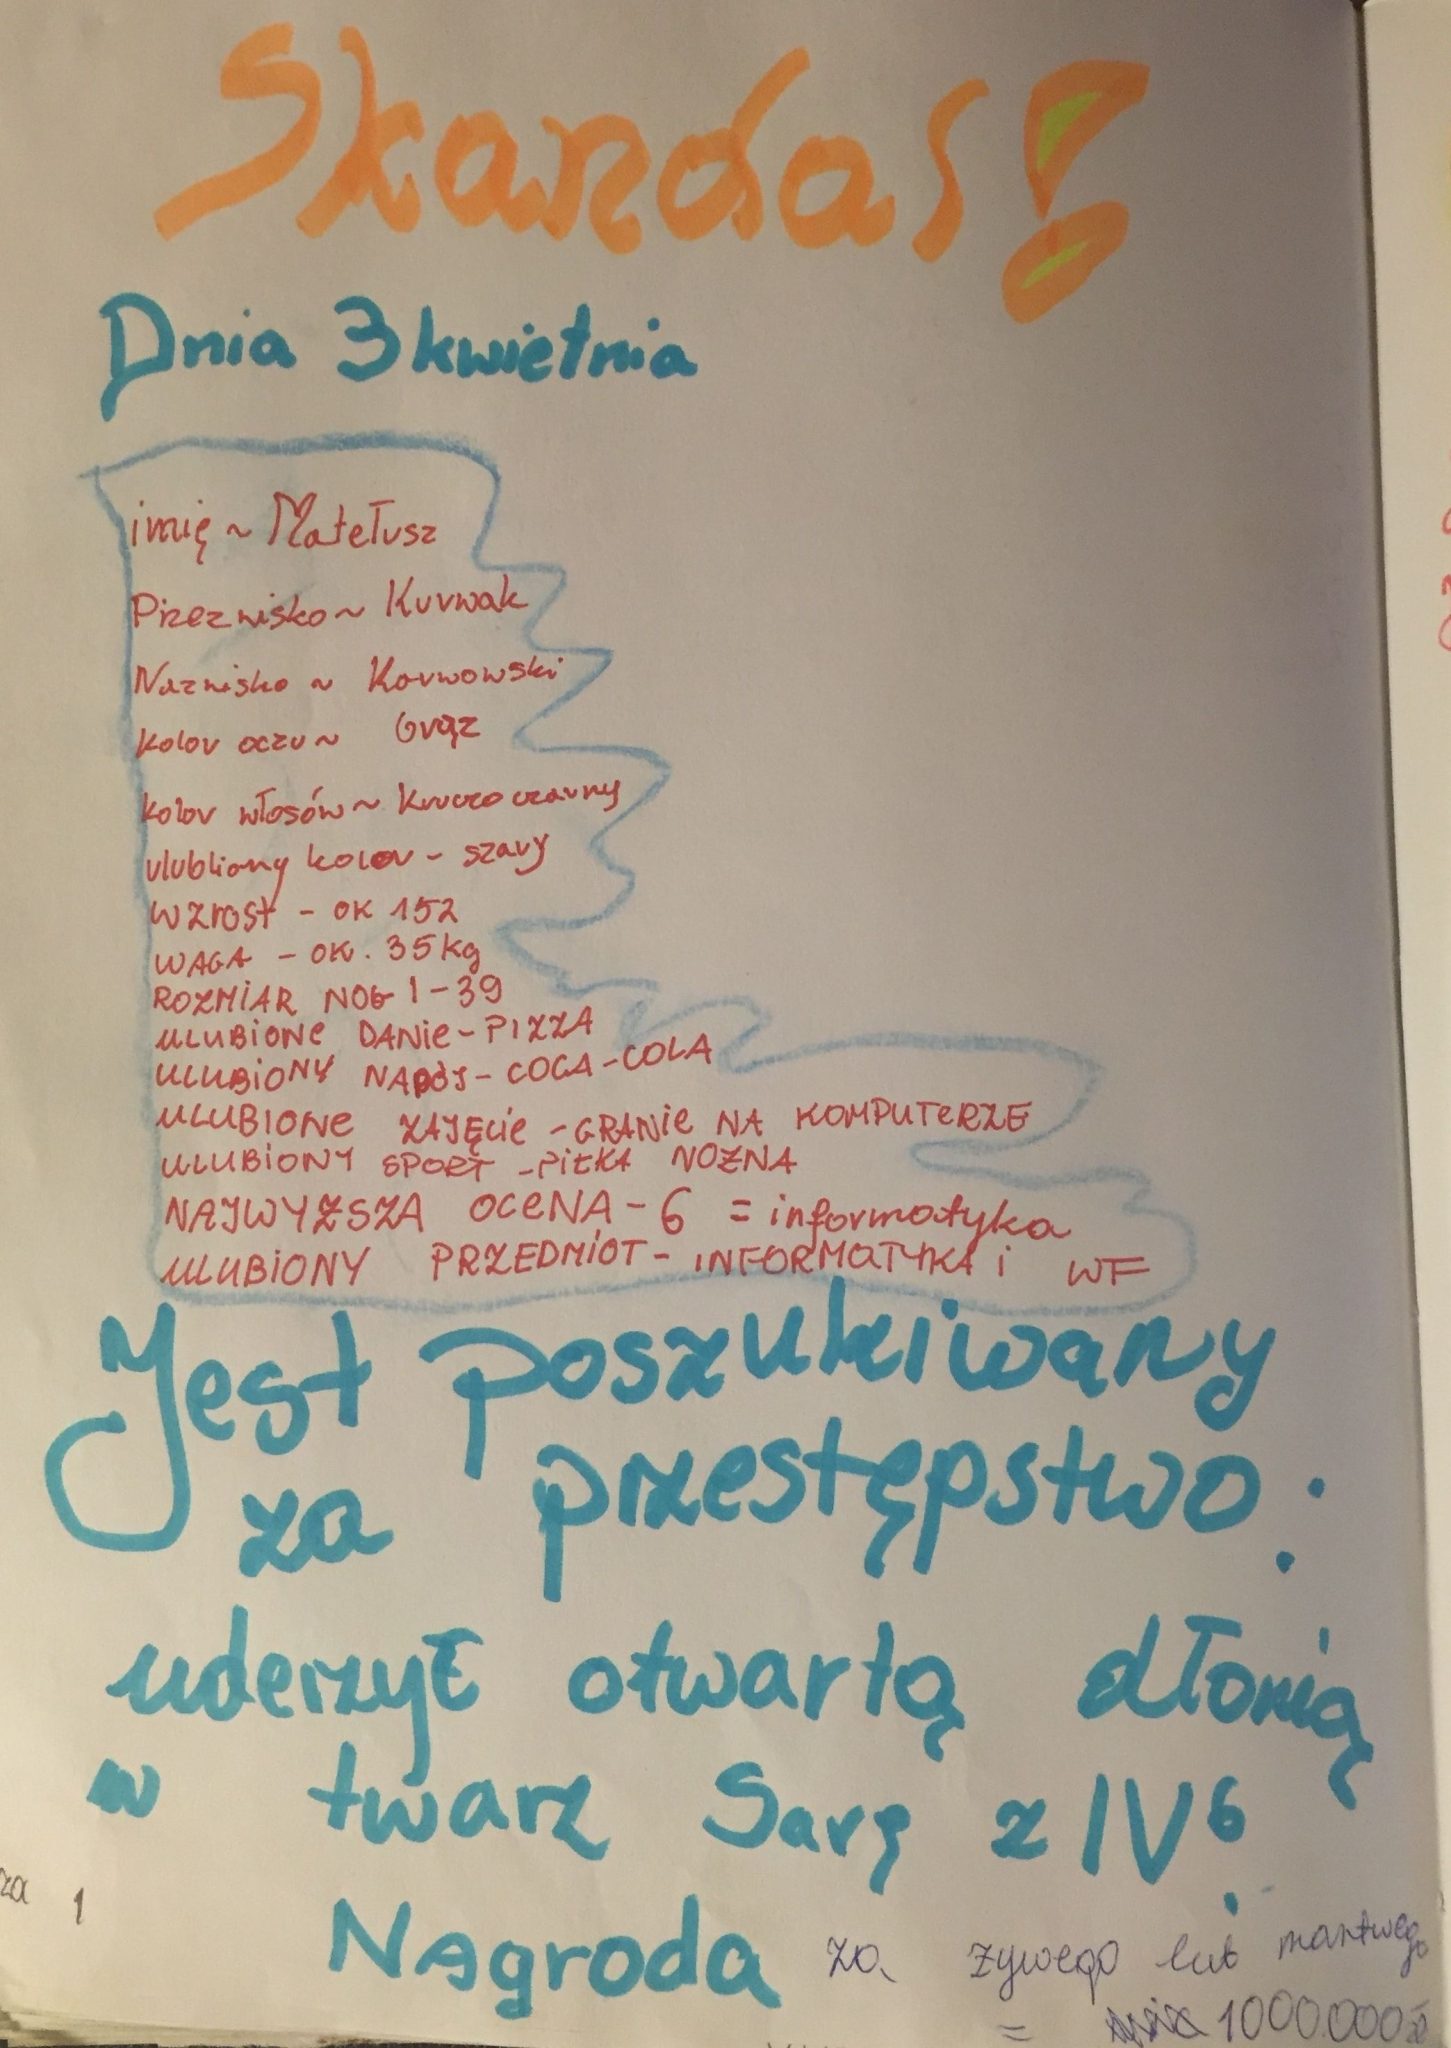 Skandal!
Dnia 3 kwietnia
imię ~ Matełusz
Przeznisko ~ Kurwak
Nazwisko ~ Karwowski
kolor oczu ~ Brąz
kolor włosów ~ Kruczoczarny
ulubiony kolor - szary
WZROST - OK 152
WAGA - OK. 35 kg
ROZMIAR NOG I - 39
ULUBIONE DANIE - PIZZA
ULUBIONY NAPÓJ - COCA-COLA
ULUBIONE ZAJĘCIE - GRANIE NA KOMPUTERZE
ULUBIONY SPORT - PIŁKA NOŻNA
NAJWYŻSZA OCENA - 6 = informatyka
ULUBIONY PRZEDMIOT - INFORMATYKA i WF
Jest poszukiwany
za przestępstwo:
uderzył otwartą dłonią
w twarz Sarę z IV b.
za 1
Nagroda za żywego lub martwego
= 1000.000 zł